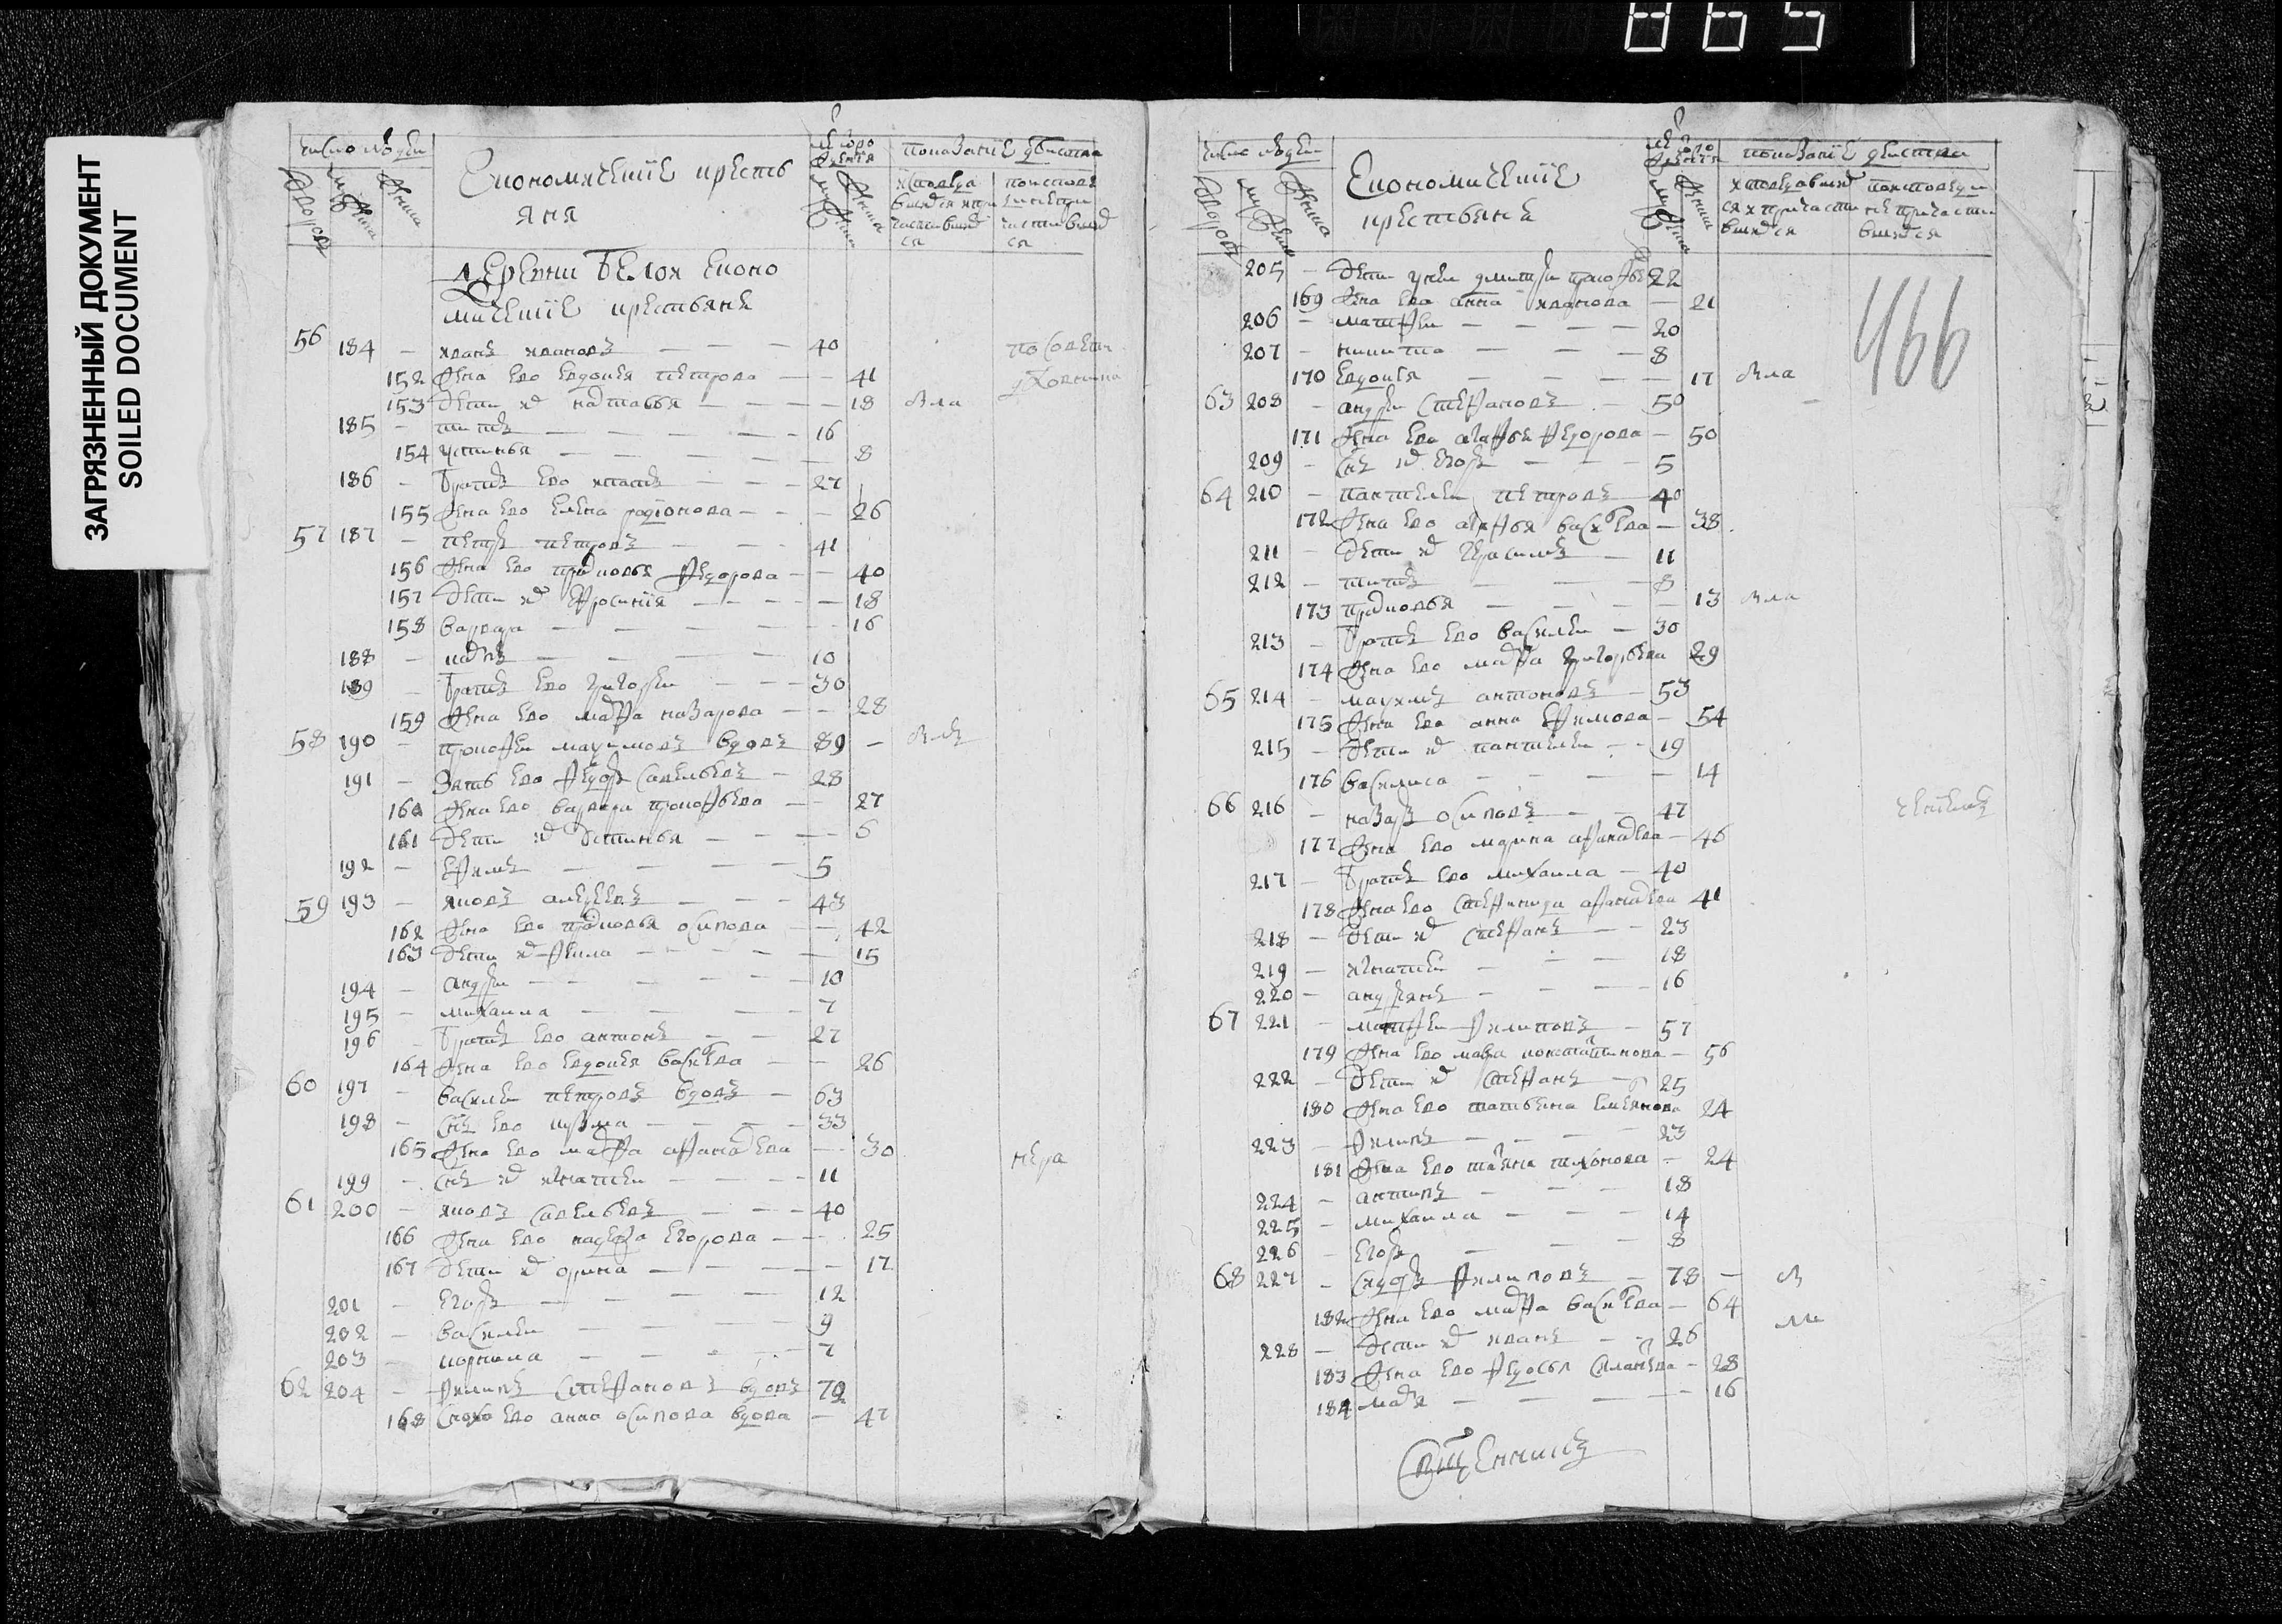 865
ЗАГРЯЗНЕННЫЙ ДОКУМЕНТ
SOILED DOCUMENT
число людеи
Економическiе кресть
яня
показанiе действа
деревни Белоя еконо
мическiе крестьяне
56 184 – иванъ ивановъ – 40
152 жена ево евдокея петрова – 41
153 дети их настасья – 18
185 – титъ – 16
154 устинья – 8
186 – братъ ево ипатъ – 27
155 жена ево елена родiонова – 26
57 187 – петръ петровъ – 41
156 жена ево прасковья федорова – 40
157 дети их ефросинiя – 18
158 варвара – 16
188 – карпъ – 10
189 – братъ ево григореи – 30
159 жена ево марфа назарова – 28
58 190 – прокофеи максимовъ вдовъ 89 –
191 – зять ево федоръ савельевъ – 28
160 жена ево варвара прокофьева – 27
161 дети их устинья – 6
192 – ефимъ – 5
59 193 – яковъ алексеевъ – 43
162 жена ево прасковья осипова – 42
163 дети их фекла – 15
194 – андреи – 10
195 – михаила – 7
196 – братъ ево антонъ – 27
164 жена ево евдокея васильева – 26
60 197 – василеи петровъ вдовъ – 63
198 – снъ ево кузма – 33
165 жена ево марфа афанасьева – 30
199 – снъ их игнатеи – 11
61 200 – яковъ савельевъ – 40
166 жена ево надежда егорова – 25
167 дети их орина – 17
201 – егоръ – 12
202 – василеи – 9
203 – корнила – 7
62 204 – филипъ степановъ вдовъ 72
168 сноха ево анна осипова вдова – 47
число людеи
Економическiе
крестьяне
показанiе действа
466
205 – дети у неи дмитреи прокофьевъ 22
169 жена ево анна иванова – 21
206 – матфеи – 20
207 – никита – 8
170 евдокея – 17
63 208 – андреи степановъ – 50
171 жена ево агафья федорова – 50
209 – снъ их егоръ – 5
64 210 – пантелеи петровъ – 40
172 жена ево агафья васильева – 38
211 – дети их герасимъ – 11
212 – титъ – 8
173 прасковья – 13
213 – братъ ево василеи – 30
174 жена ево марфа григорьева 29
65 214 – максимъ антоновъ – 53
175 жена ево анна ефимова – 54
215 – дети их пантелеи – 19
176 василиса – 14
66 216 – назаръ осиповъ – 47
177 жена ево марина афанасьева – 46
217 – братъ ево михаила – 40
178 жена ево степанида афанасьева 41
218 – дети их степанъ – 23
219 – игнатеи – 18
220 – андреянъ – 16
67 221 – матфеи филиповъ – 57
179 жена ево мавра константинова – 56
222 – дети их степанъ – 25
180 жена ево татьяна емелянова 24
223 – филипъ – 23
181 жена ево татьяна тихонова – 24
224 – антипъ – 18
225 – михаила – 14
226 – егоръ – 8
68 227 – сидоръ филиповъ – 78 –
182 жена ево марфа васильева – 64
228 – дети их иванъ – 26
183 жена ево федосья – 28
184 марья – 16
Священникъ